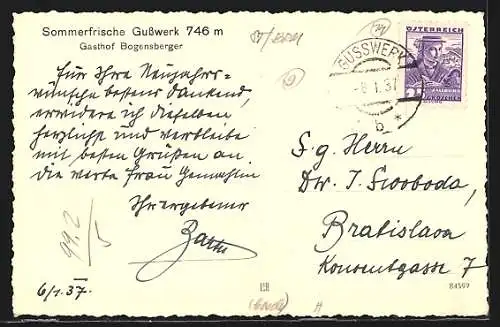 Sommerfrische Gußwerk 746 m
Gasthof Bogensberger
Für Ihre Neujahrs-
wünsche bestens dankend,
erwidere ich dieselben
herzlichst und verbleibe
mit besten Grüßen an
die werte Frau Gemahlin
Ihr ergebener
6/1.37.
99.2
5
GUSSWERK
-8.I.37
b *
ÖSTERREICH
GROSCHEN
S.g. Herrn
Dr. J. Swoboda,
Bratislava
Konventgasse 7
84599